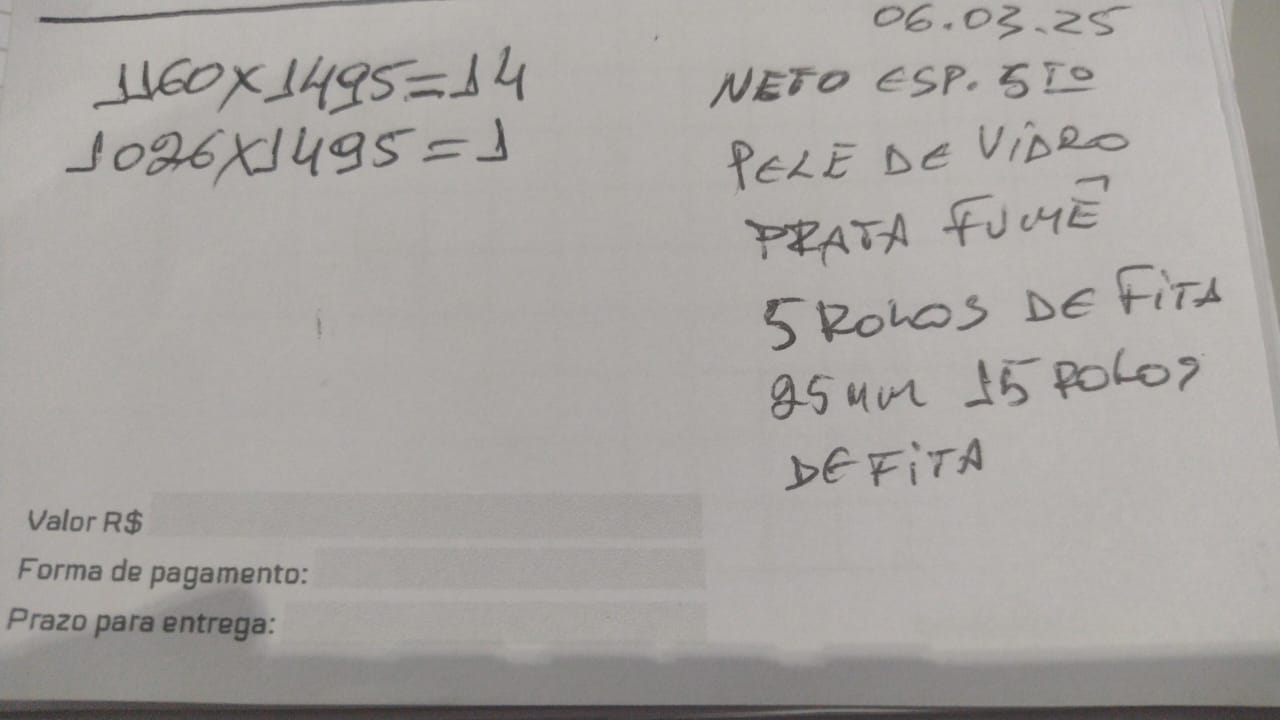 06.03.25
1160x1495=14
1026x1495=1
NETO ESP. STO
PELE DE VIDRO
PRATA FUMÊ
5 ROLOS DE FITA
25mm 15 ROLOS
DE FITA
Valor R$
Forma de pagamento:
Prazo para entrega: